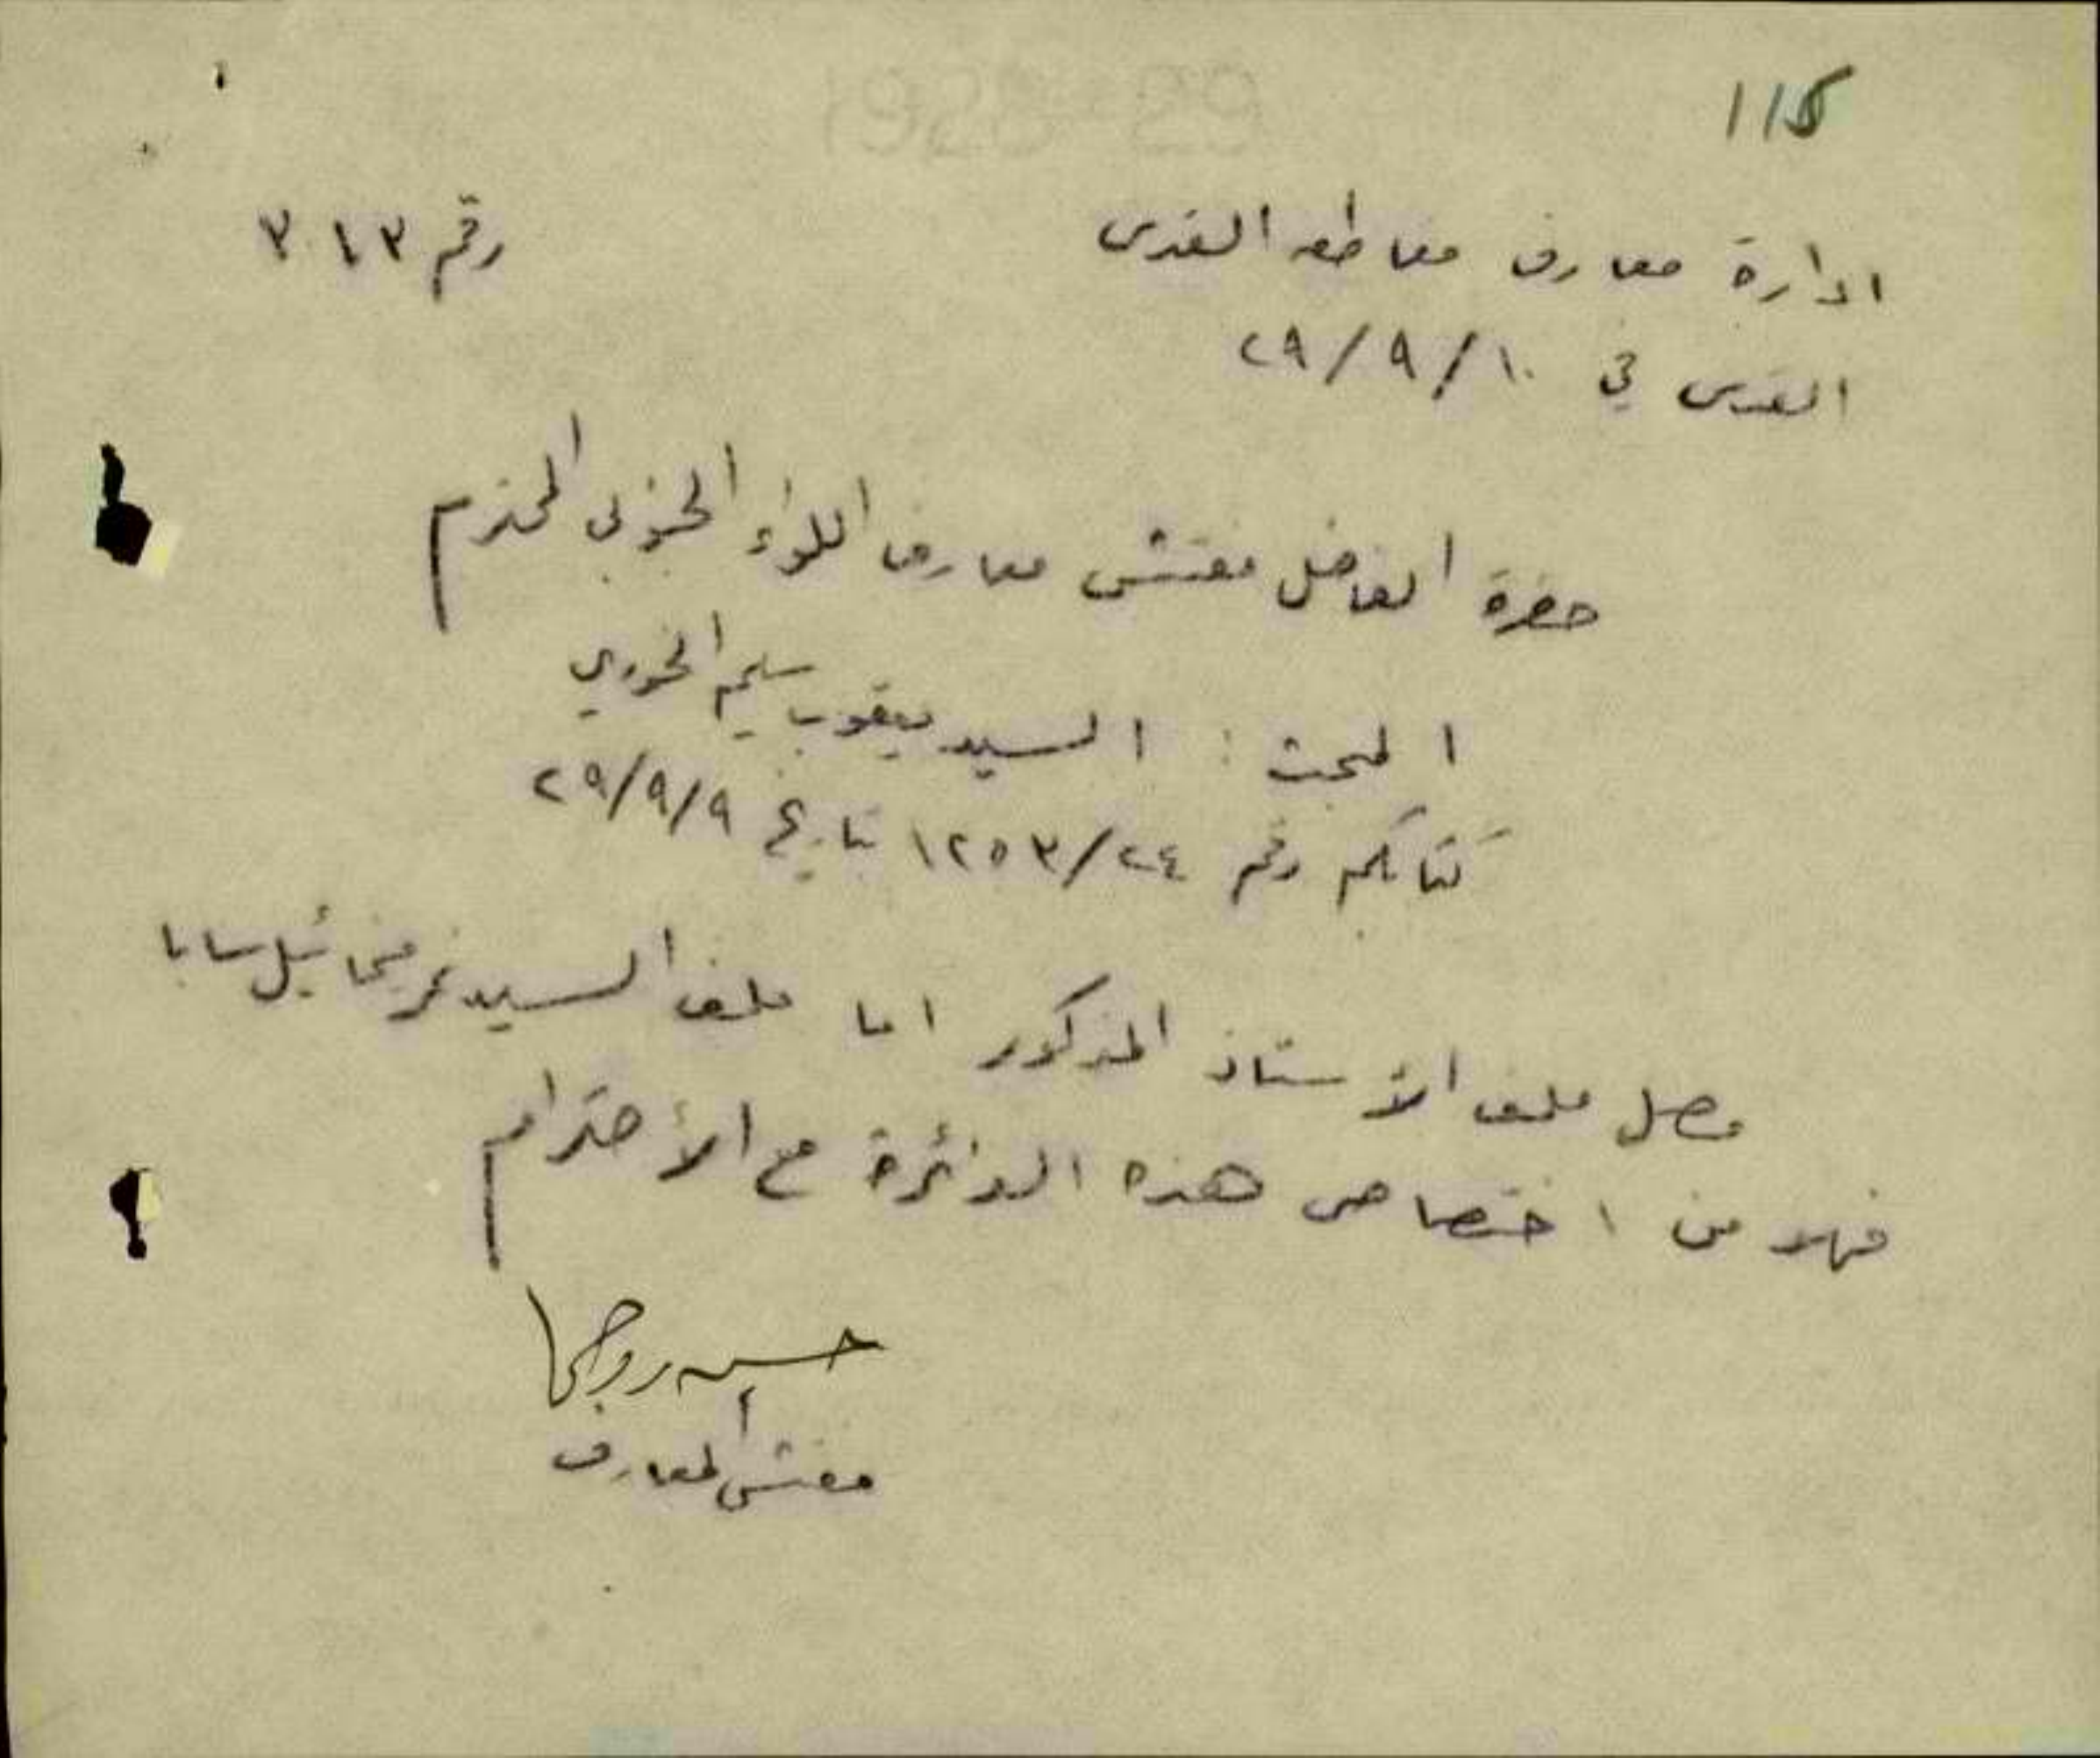 115
ادارة معارف مقاطعة القدس
رقم ٣١٣
القدس في ٢٩/٩/١٠
حضرة الفاضل مفتش معارف اللواء الجنوبي المحترم
المبحث : السيد يعقوب سليم الخوري
كتابكم رقم ١٢٥٣/٢٤ بتاريخ ٢٩/٩/٩
وصل ملف الأستاذ المذكور اما ملف السيد نمر ميخائيل سابا
فهو من اختصاص هذه الدائرة مع الأحترام
حسين روحي
مفتش المعارف